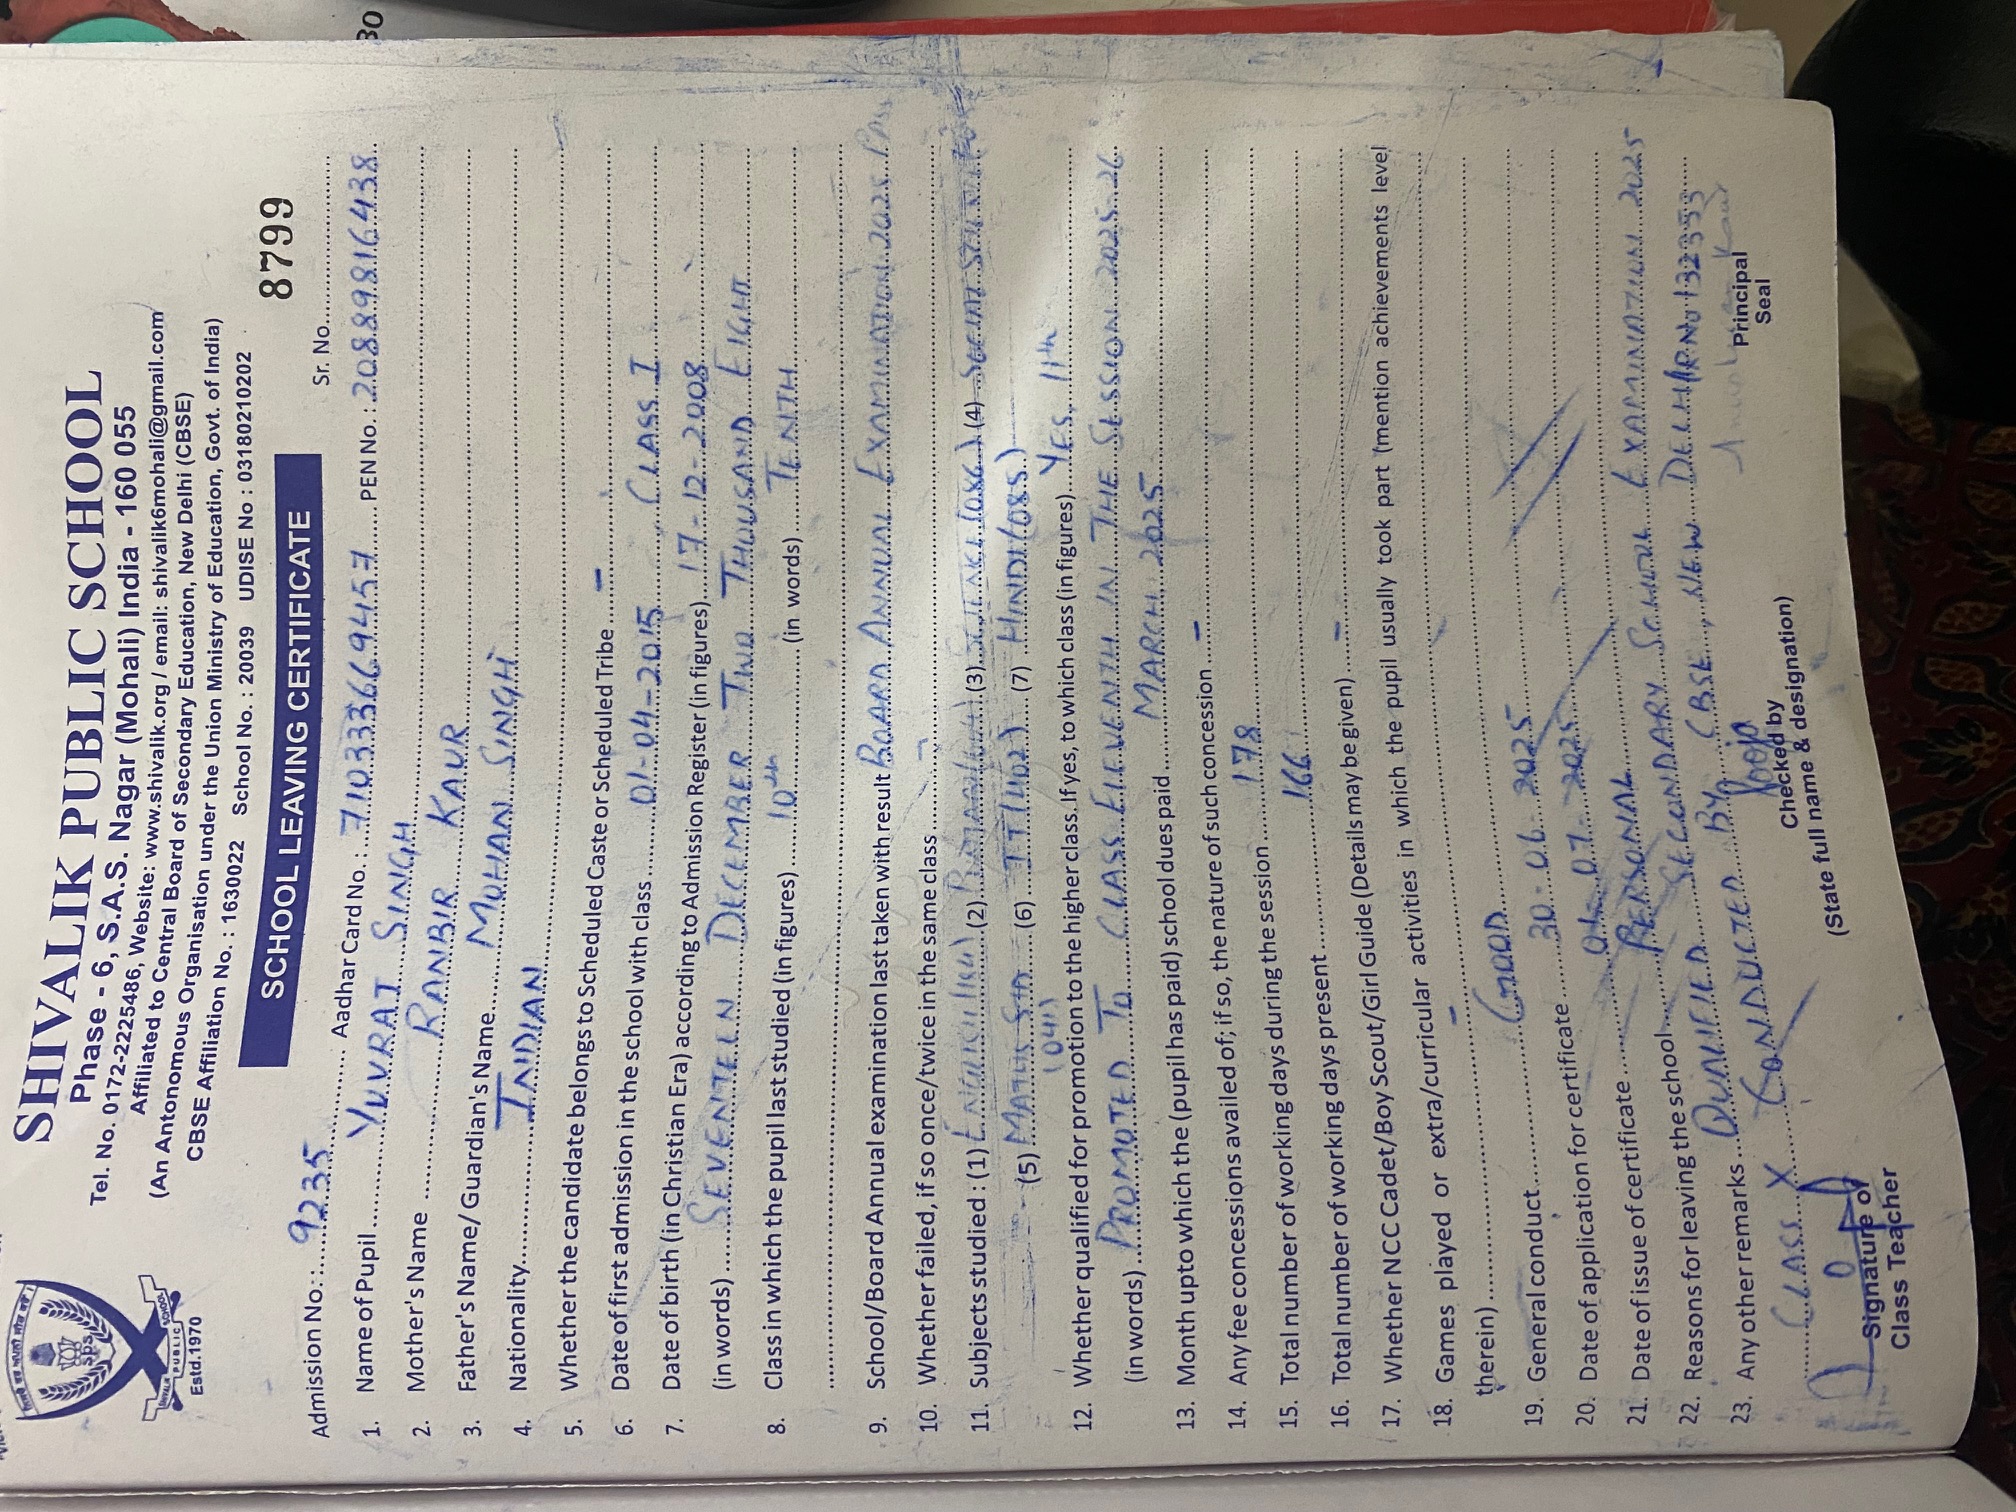 SHIVALIK PUBLIC SCHOOL
Phase - 6, S.A.S. Nagar (Mohali) India - 160 055
Tel. No. 0172-2225486, Website: www.shivalik.org / email: shivalik6mohali@gmail.com
Affiliated to Central Board of Secondary Education, New Delhi (CBSE)
(An Antonomous Organisation under the Union Ministry of Education, Govt. of India)
CBSE Affiliation No. : 1630022 School No. : 20039 UDISE No : 03180210202
SPS
SHIVALIK PUBLIC SCHOOL
Estd.1970
SCHOOL LEAVING CERTIFICATE
87799
Sr. No.
Admission No.: 9235 Aadhar Card No.: 710333669457 PEN No.: 20889816438
1. Name of Pupil YUVRAJ SINGH
2. Mother's Name RANBIR KAUR
3. Father's Name/ Guardian's Name MOHAN SINGH
4. Nationality INDIAN
5. Whether the candidate belongs to Scheduled Caste or Scheduled Tribe –
6. Date of first admission in the school with class 01-04-2015 CLASS I
7. Date of birth (in Christian Era) according to Admission Register (in figures) 17-12-2008
(in words) SEVENTEEN DECEMBER TWO THOUSAND EIGHT
8. Class in which the pupil last studied (in figures) 10th (in words) TENTH
9. School/Board Annual examination last taken with result BOARD ANNUAL EXAMINATION 2025 Pass
10. Whether failed, if so once/twice in the same class –
11. Subjects studied : (1) ENGLISH (184) (2) (3) SCIENCE (086) (4)
(5) MATHS STD (041) (6) IT (402) (7) HINDI (085)
12. Whether qualified for promotion to the higher class. If yes, to which class (in figures) YES, 11th
(in words) PROMOTED TO CLASS ELEVENTH IN THE SESSION 2025-26
13. Month upto which the (pupil has paid) school dues paid MARCH 2025
14. Any fee concessions availed of; if so, the nature of such concession –
15. Total number of working days during the session 178
16. Total number of working days present 166
17. Whether NCC Cadet/Boy Scout/Girl Guide (Details may be given) –
18. Games played or extra/curricular activities in which the pupil usually took part (mention achievements level
therein) –
19. General conduct GOOD
20. Date of application for certificate 30-06-2025
21. Date of issue of certificate 04-07-2025
22. Reasons for leaving the school PERSONAL
23. Any other remarks QUALIFIED SECONDARY SCHOOL EXAMINATION 2025
CONDUCTED BY CBSE, NEW DELHI
CLASS X
Pooja
Signature of
Class Teacher
Checked by
(State full name & designation)
Principal
Seal